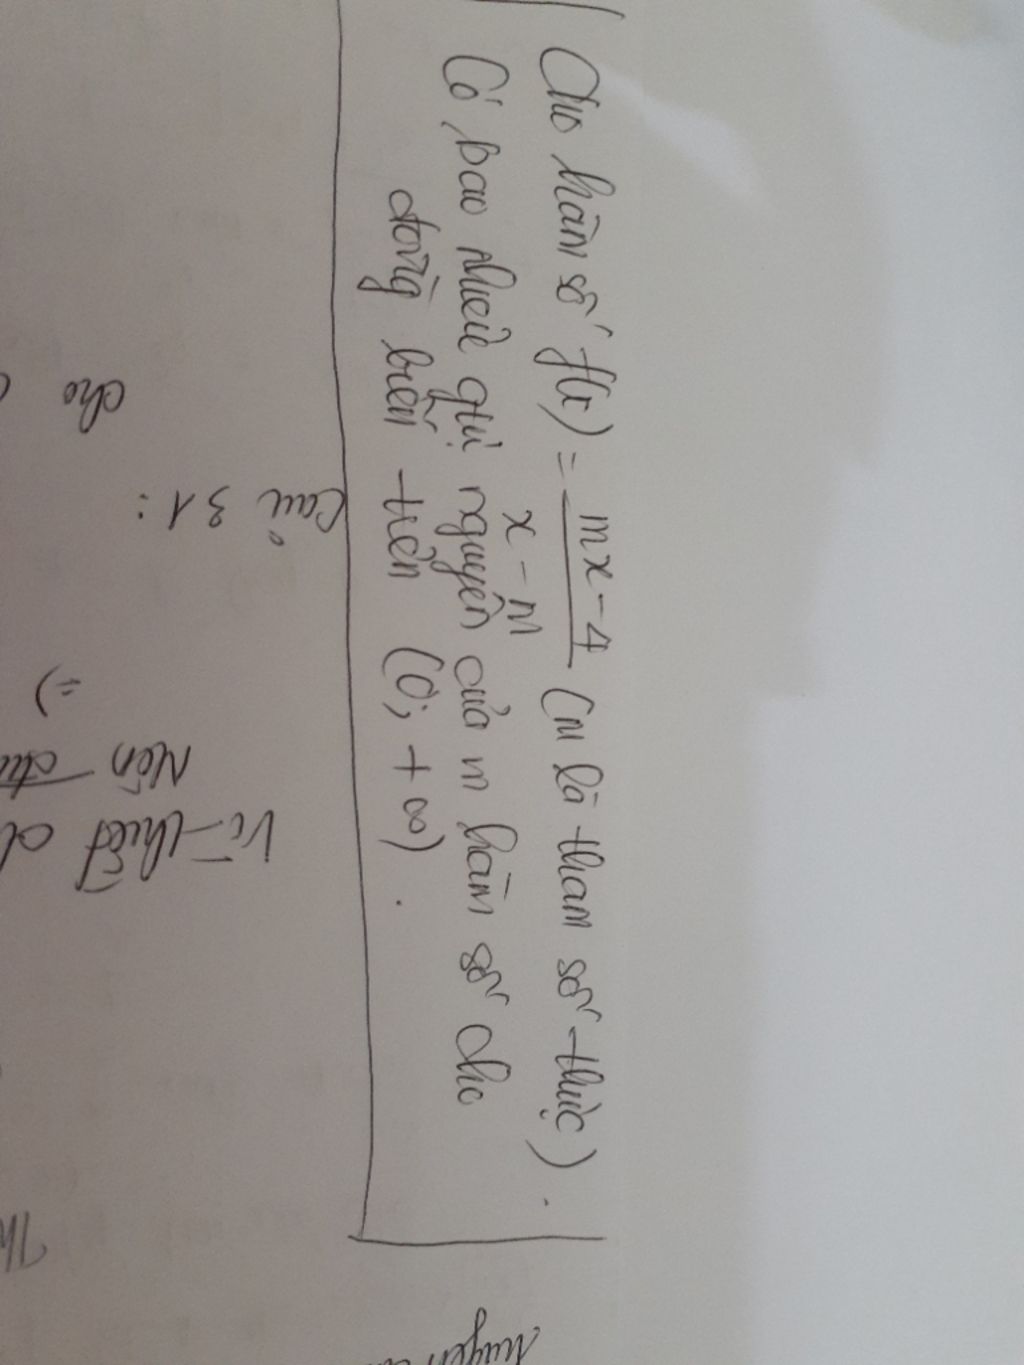 Cho hàm số f(x) = \frac{mx-4}{x-m} (m là tham số thực).
Có bao nhiêu giá trị nguyên của m hàm số cho
đồng biến trên (0; +∞).
Câu 31:
cho
=)
Nên
Vì thiết